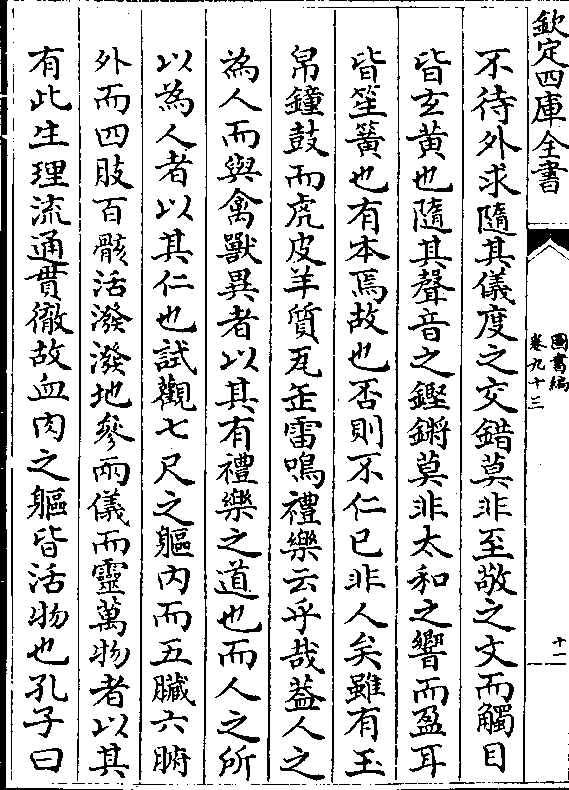 欽定四庫全書
圖書編
卷九十三
十一
不待外求隨其儀度之交錯莫非至敬之文而觸目
皆玄黄也隨其聲音之鏗鏘莫非太和之響而盈耳
皆笙簧也有本焉故也否則不仁已非人矣雖有玉
帛鐘鼓而虎皮羊質瓦缶雷鳴禮樂云乎哉葢人之
為人而與禽獸異者以其有禮樂之道也而人之所
以為人者以其仁也試觀七尺之軀内而五臟六腑
外而四肢百骸活潑潑地參兩儀而靈萬物者以其
有此生理流通貫徹故血肉之軀皆活物也孔子曰